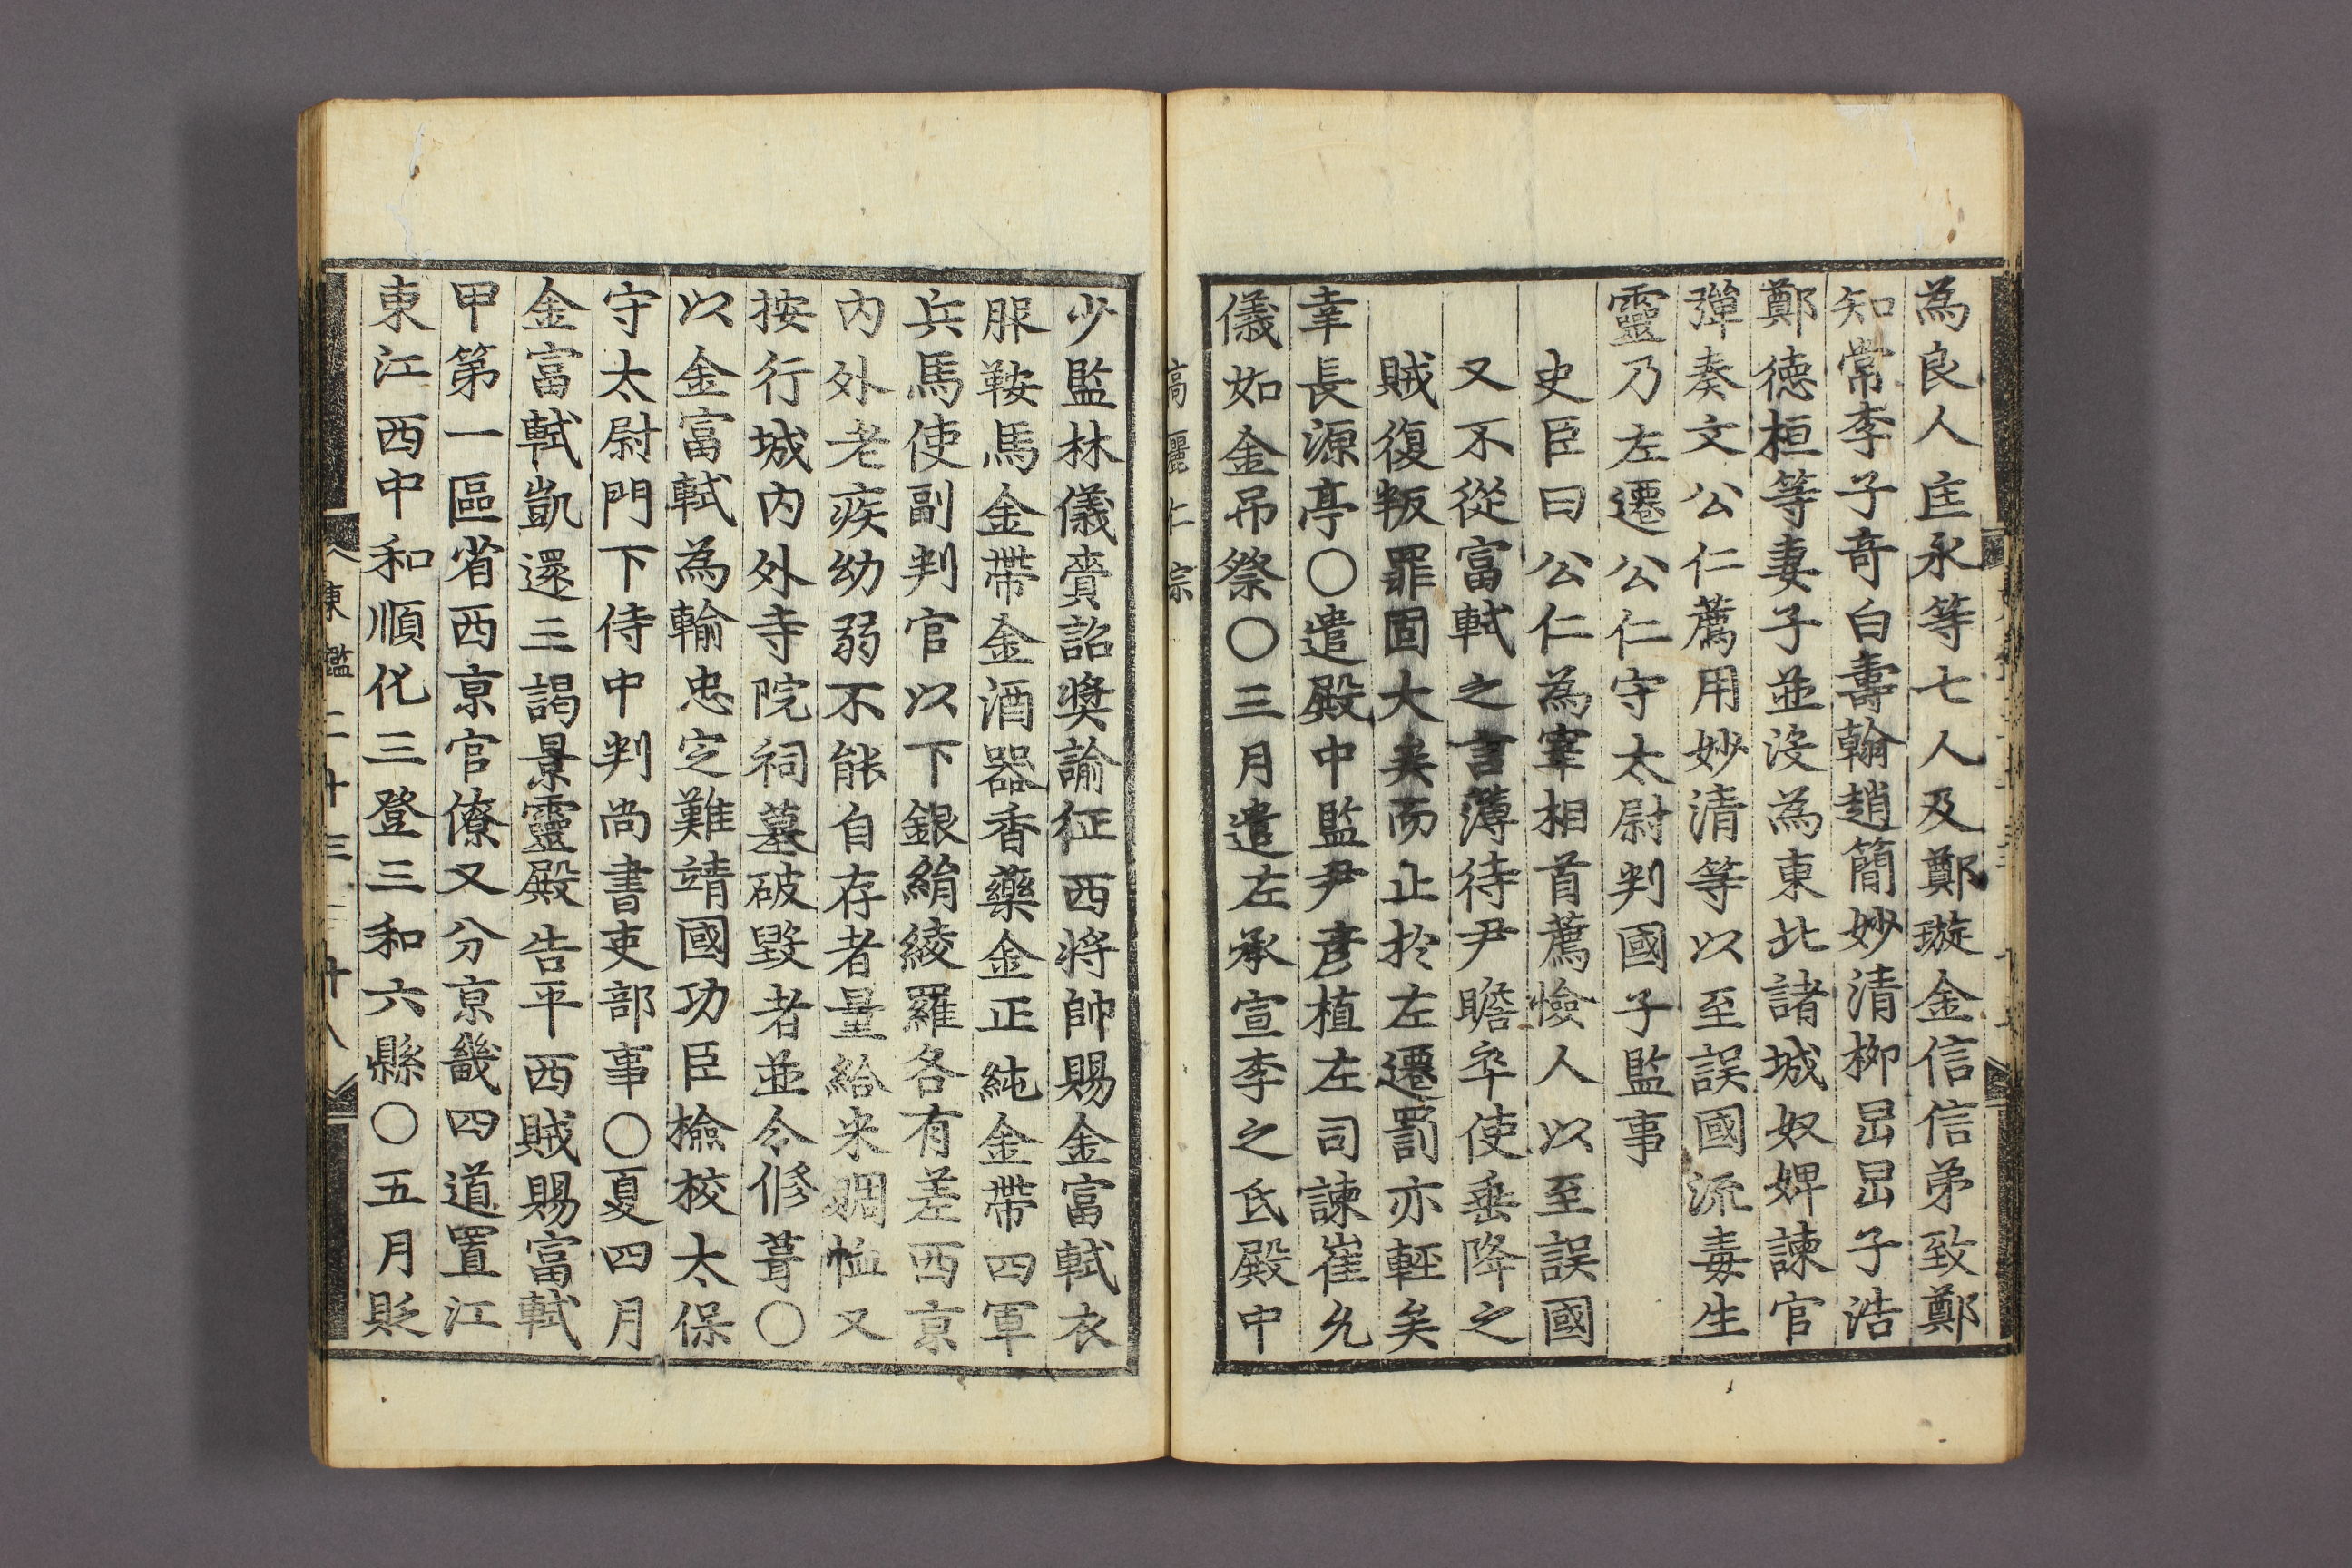 為良人庄永等七人及鄭璇金信信弟致鄭
知常李子竒白壽翰趙簡妙清栁旵旵子浩
鄭德桓等妻子並没為東北諸城奴婢諫官
彈奏文公仁薦用妙清等以至誤國流毒生
靈乃左遷公仁守太尉判國子監事
史臣曰公仁為宰相首薦憸人以至誤國
又不從富軾之言薄待尹瞻卒使垂降之
賊復叛罪固大矣而止於左遷罰亦輕矣
幸長源亭〇遣殿中監尹彦植左司諫崔允
儀如金吊祭〇三月遣左承宣李之氐殿中
高麗仁宗
少監林儀賫詔奬諭征西將帥賜金富軾衣
服鞍馬金帶金酒器香藥金正純金帶四軍
兵馬使副判官以下銀絹綾羅各有差西京
内外老疾幼弱不能自存者量給米賙恤又
按行城内外寺院祠墓破毀者並令修葺〇
以金富軾為輸忠定難靖國功臣檢校太保
守太尉門下侍中判尚書吏部事〇夏四月
金富軾凱還三謁景靈殿告平西賊賜富軾
甲第一區省西京官僚又分京畿四道置江
東江西中和順化三登三和六縣〇五月貶
東鑑二十三 十八